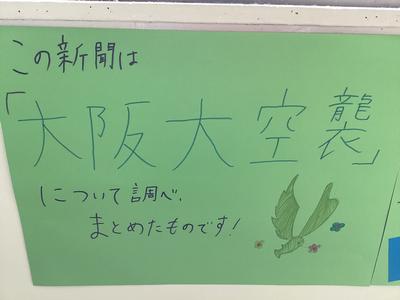 この新聞は
「大阪大空襲」
について調べ、
まとめたものです!